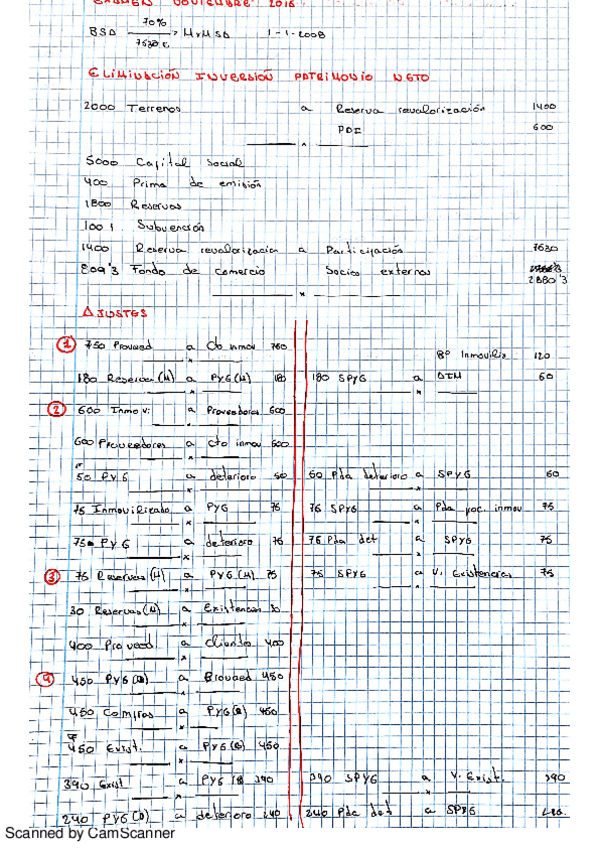 EXAMEN NOVIEMBRE 2016
BSA 70% / 7630 € > M y M SA 1-1-2008
ELIMINACIÓN INVERSIÓN PATRIMONIO NETO
2000 Terrenos a Reserva revalorización 1400
PDI 600
5000 Capital Social
400 Prima de emisión
1800 Reservas
100'1 Subvención
1400 Reserva revalorización a Participación 7630
809'3 Fondo de comercio Socios externos
2880'3
AJUSTES
1 750 Proveed a Cto inmov 750
Bº Inmoviliz 120
180 Reservas (M) a PYG (M) 180 180 SPYG a DTM 60
2 600 Inmov. a Proveedores 600
600 Proveedores a Cto inmov 600
50 PYG a deterioro 50 50 Pda deterioro a SPYG 50
75 Inmovilizado a PYG 75 75 SPYG a Pda proc. inmov 75
75 PYG a deterioro 75 75 Pda det a SPYG 75
3 75 Reservas (M) a PYG (M) 75 75 SPYG a V. Existencias 75
30 Reservas (M) a Existencias 30
400 Proveed a Clientes 400
4 450 PYG (B) a Proveed 450
450 Compras a PYG (B) 450
450 Exist. a PYG (B) 450
390 Exist a PYG (B) 390 390 SPYG a V. Exist. 390
240 PYG (B) a deterioro 240 240 Pda det a SPYG 240
Scanned by CamScanner